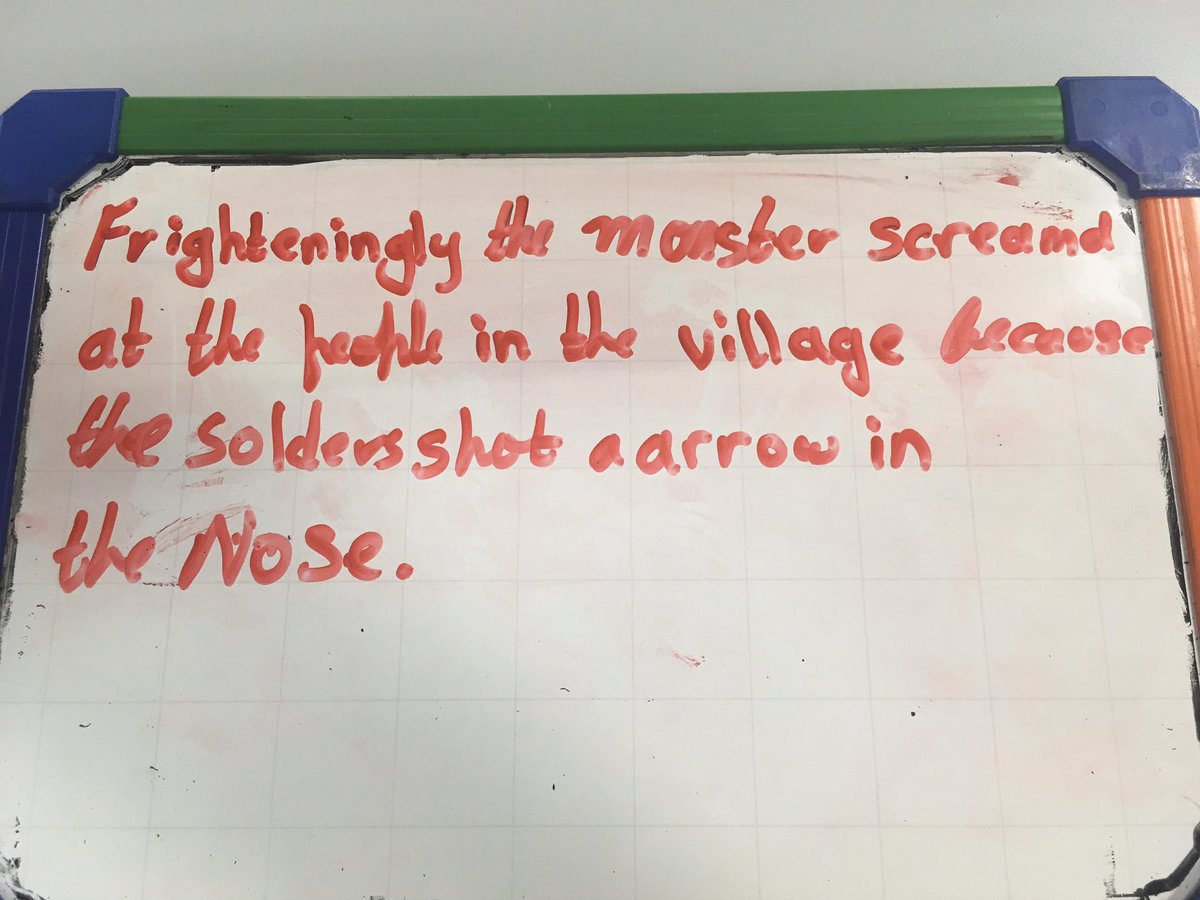 Frighteningly the monster screamd
at the people in the village because
the solders shot a arrow in
the Nose.